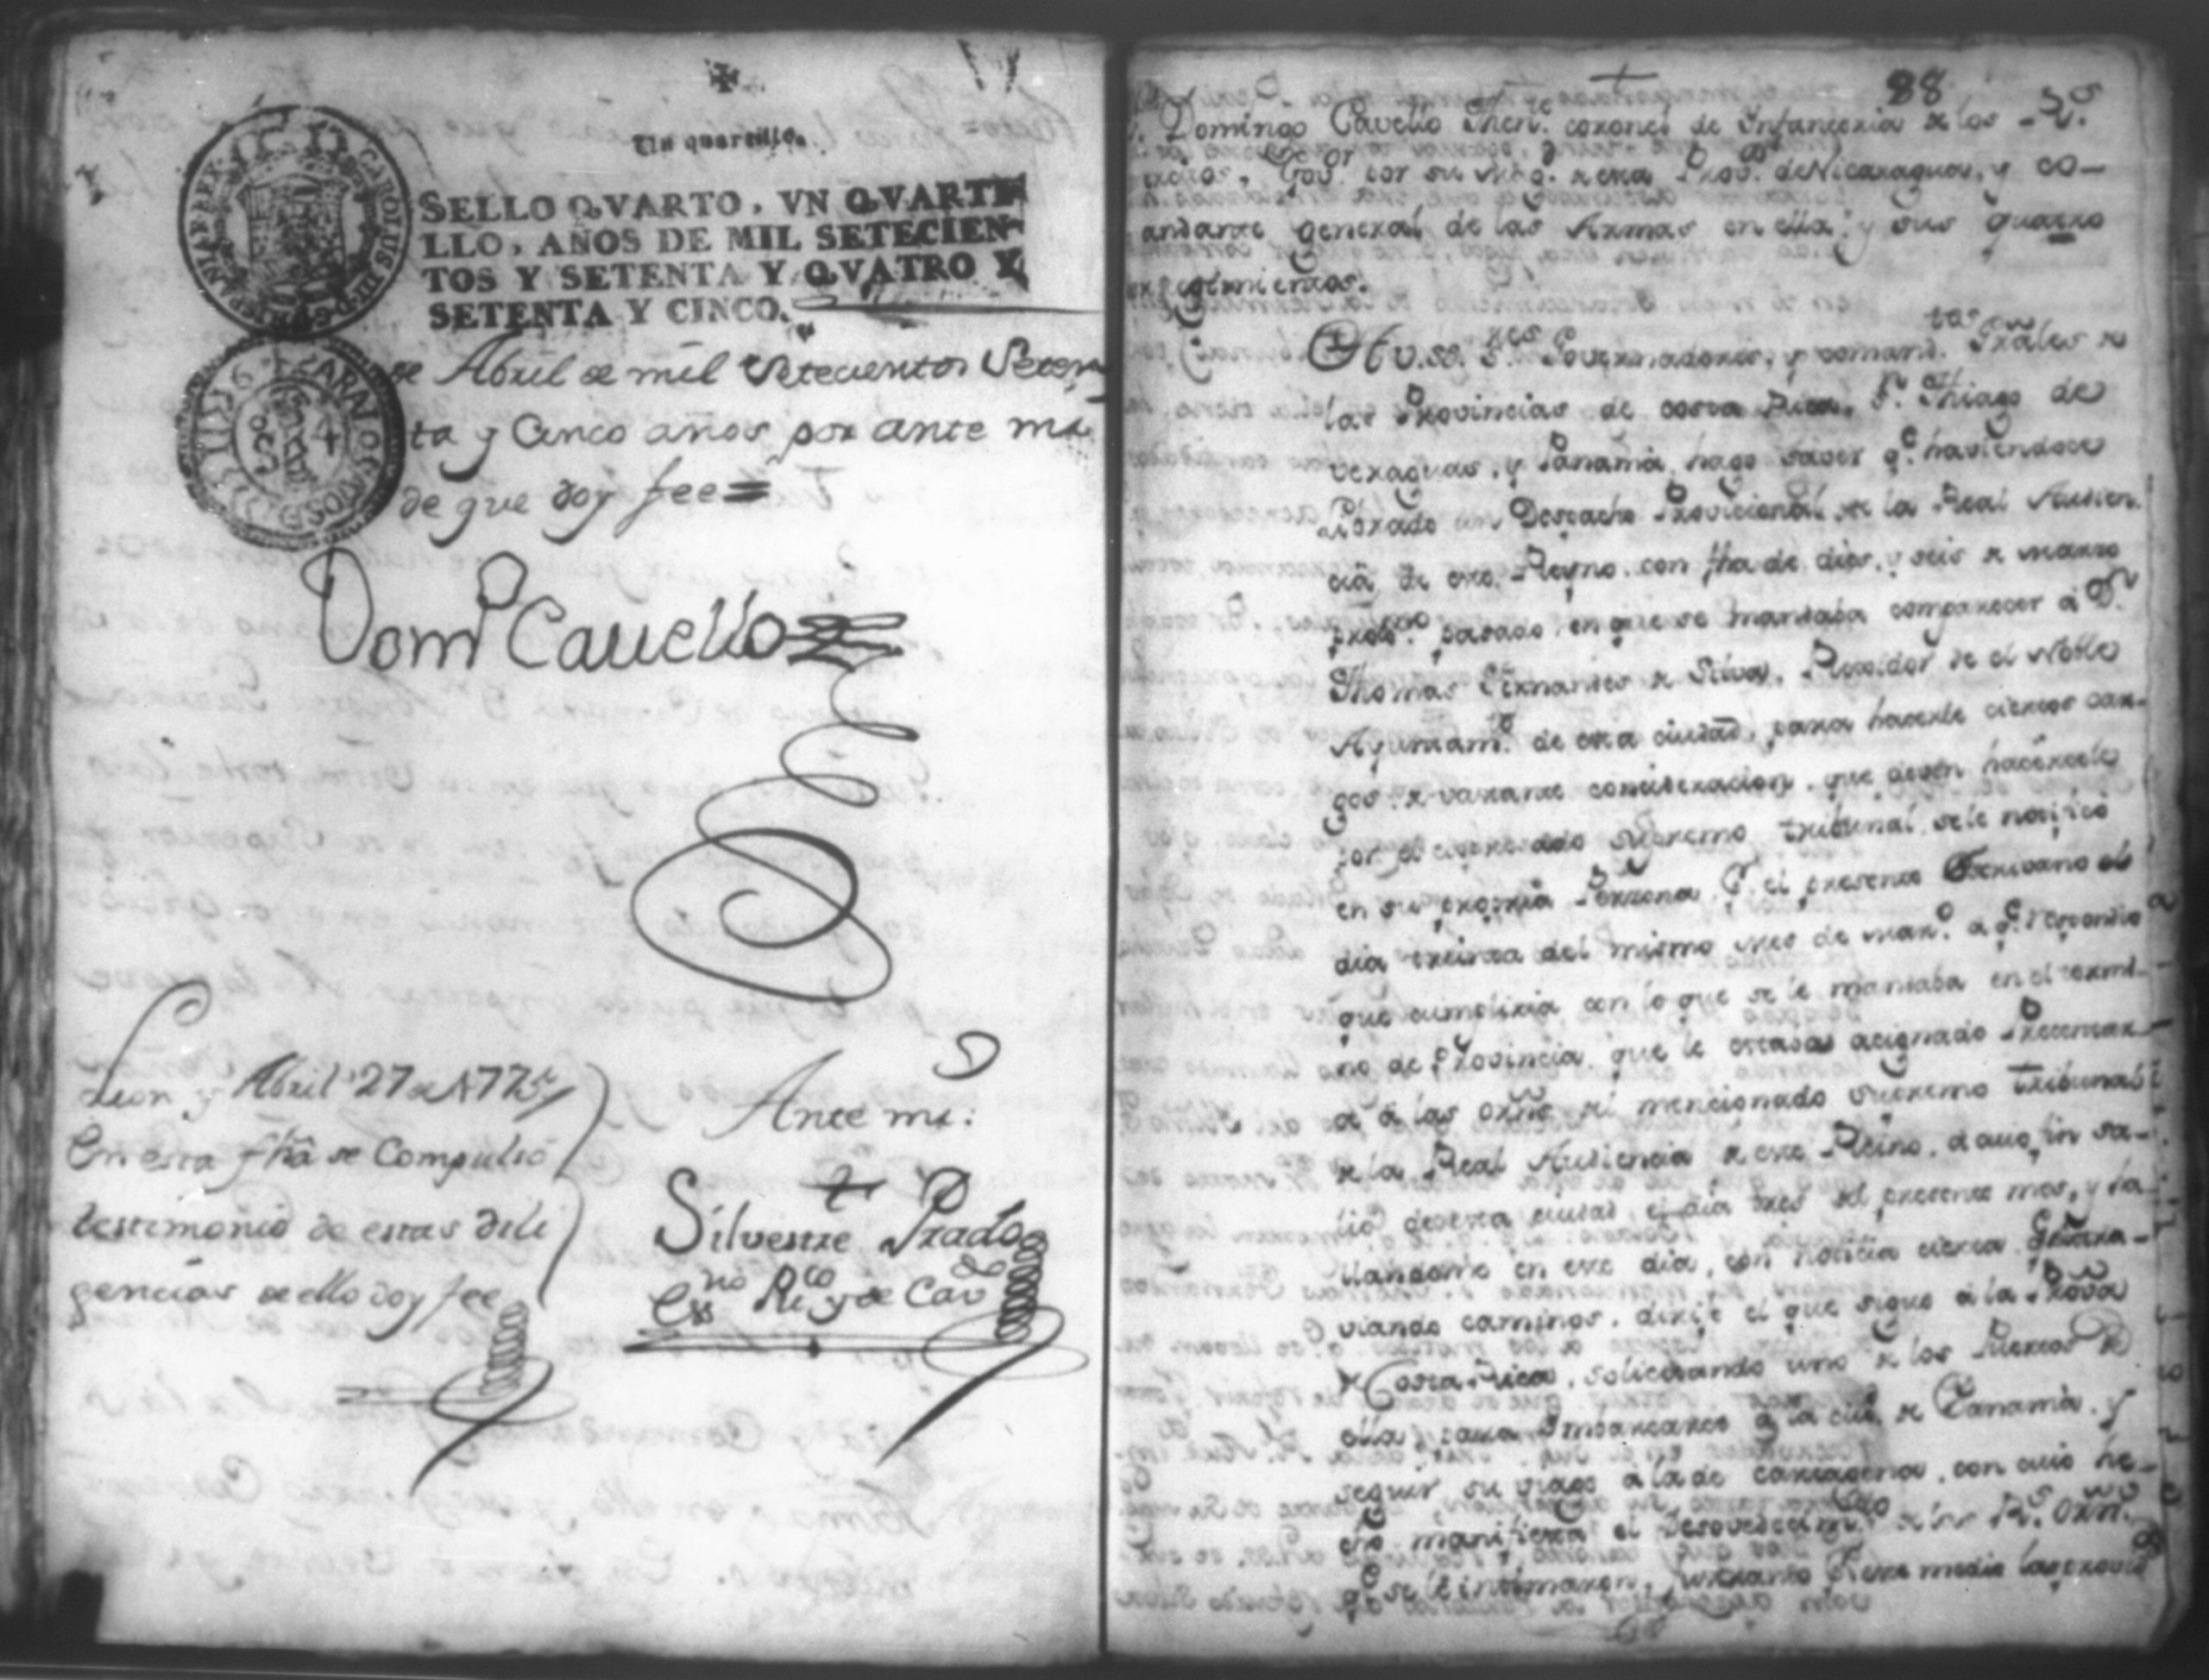 Un quartillo.
SELLO QVARTO, VN QVARTI-
LLO, AÑOS DE MIL SETECIEN-
TOS Y SETENTA Y QVATRO Y
SETENTA Y CINCO.
de Abril de mil Setecientos Seten
ta y Cinco años por ante mi
de que doy fee=
Domo Cavello
Leon y Abril 27 de 1775
En esta fha se Compulsó
testimonio de estas dili
gencias de ello doy fee
Ante mi:
Silvestre Prado
Exno Rco y de Cavdo
88
Domingo Cavello Thente. coronel de Infanteria de los Rs.
exctos, Govor. por su Mag. de esta Prova. de Nicaragua, y co-
andante general de las Armas en ella, y sus quatro
regimientos.
A V.SS. Sres. Governadores, y comandtes. Grales de
las Provincias de costa Rica, Sn. Thiago de
veraguas, y Panamá, hago saver qe. haviendose
Librado un Despacho Provicional de la Real Audien
cia de este Reyno con fha de dies, y seis de marzo
proxmo. pasado, en que se mandaba comparecer á Dn.
Thomas Fernandes de Silva, Regidor de el Noble
Ayuntamto. de esta ciudad, para hacerle ciertos car-
gos de vastante concideracion, que deven hacersele
por el expresado Supremo tribunal, se le notificó
en su propria Persona Pr. el presente Escrivano el
dia treinta del mismo mes de Marzo. a qe. respondio
que cumpliria con lo que se le mandaba en el termi-
no de Provincia, que le estava acignado Precentar-
á las orns. del mencionado Supremo tribunal
de la Real Audiencia de este Reino, á cuio fin sa-
lió de esta ciudad el dia tres del presente mes, y ha
llandome en este dia, con noticia cierta
viando caminos, dirije el que sigue á la Prova
de Costa Rica, solicitando uno de los Puertos de
ella, para Embarcarse á la ciud. de Panamá, y
seguir su viage á la de Cartagena, con cuio he-
cho manifiesta el desovedecimto. de las Rs. Orns.
qe. se le intimaron,